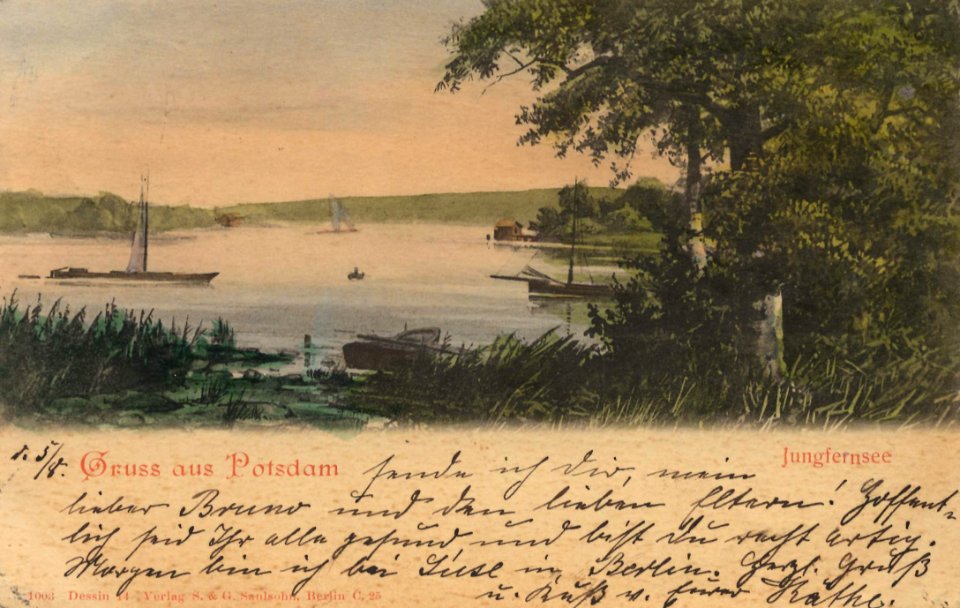 d. 5/8.
Gruss aus Potsdam sende ich dir, mein
Jungfernsee
lieber Bruno und den lieben Eltern! Hoffent-
lich seid Ihr alle gesund und bist du recht artig.
Morgen bin ich bei Liese in Berlin. Herzl. Gruß
u. Kuß v. Eurer Käthe.
1003 Dessin 14 Verlag S. & G. Saulsohn, Berlin C. 25